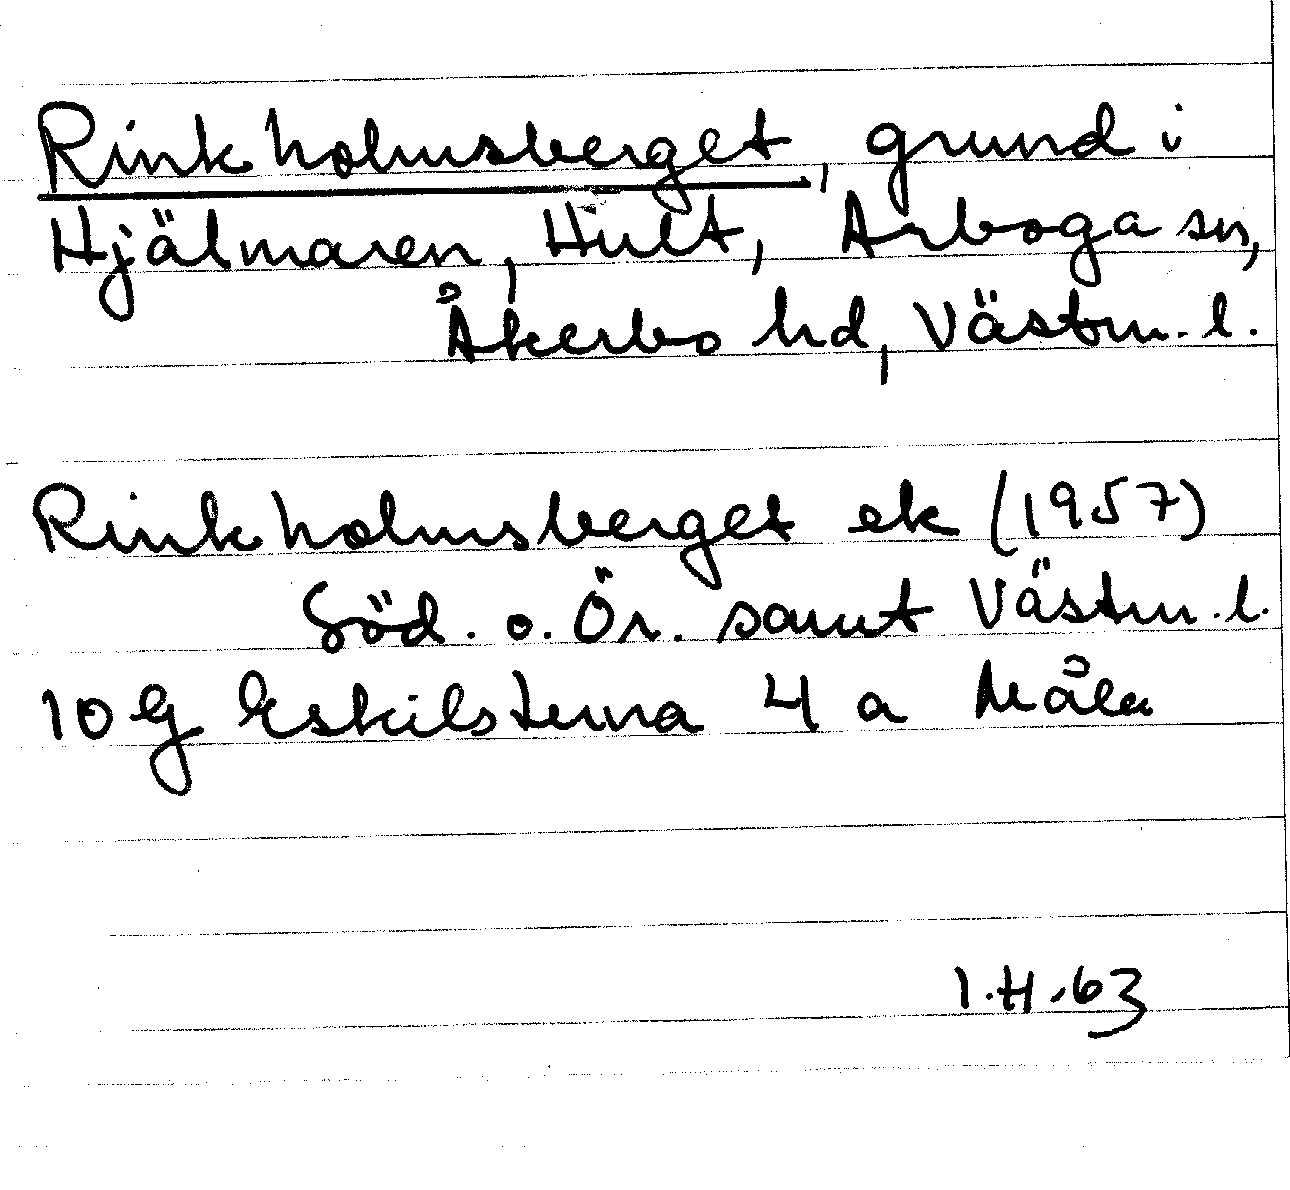 Rinkholmsberget, grund i
Hjälmaren, Hult, Arboga sn,
Åkerbo hd, Västm. l.
Rinkholmsberget ek (1957)
Söd. o. Ör. samt Västm. l.
10 G Eskilstuna 4 a Måla
I.H. 63